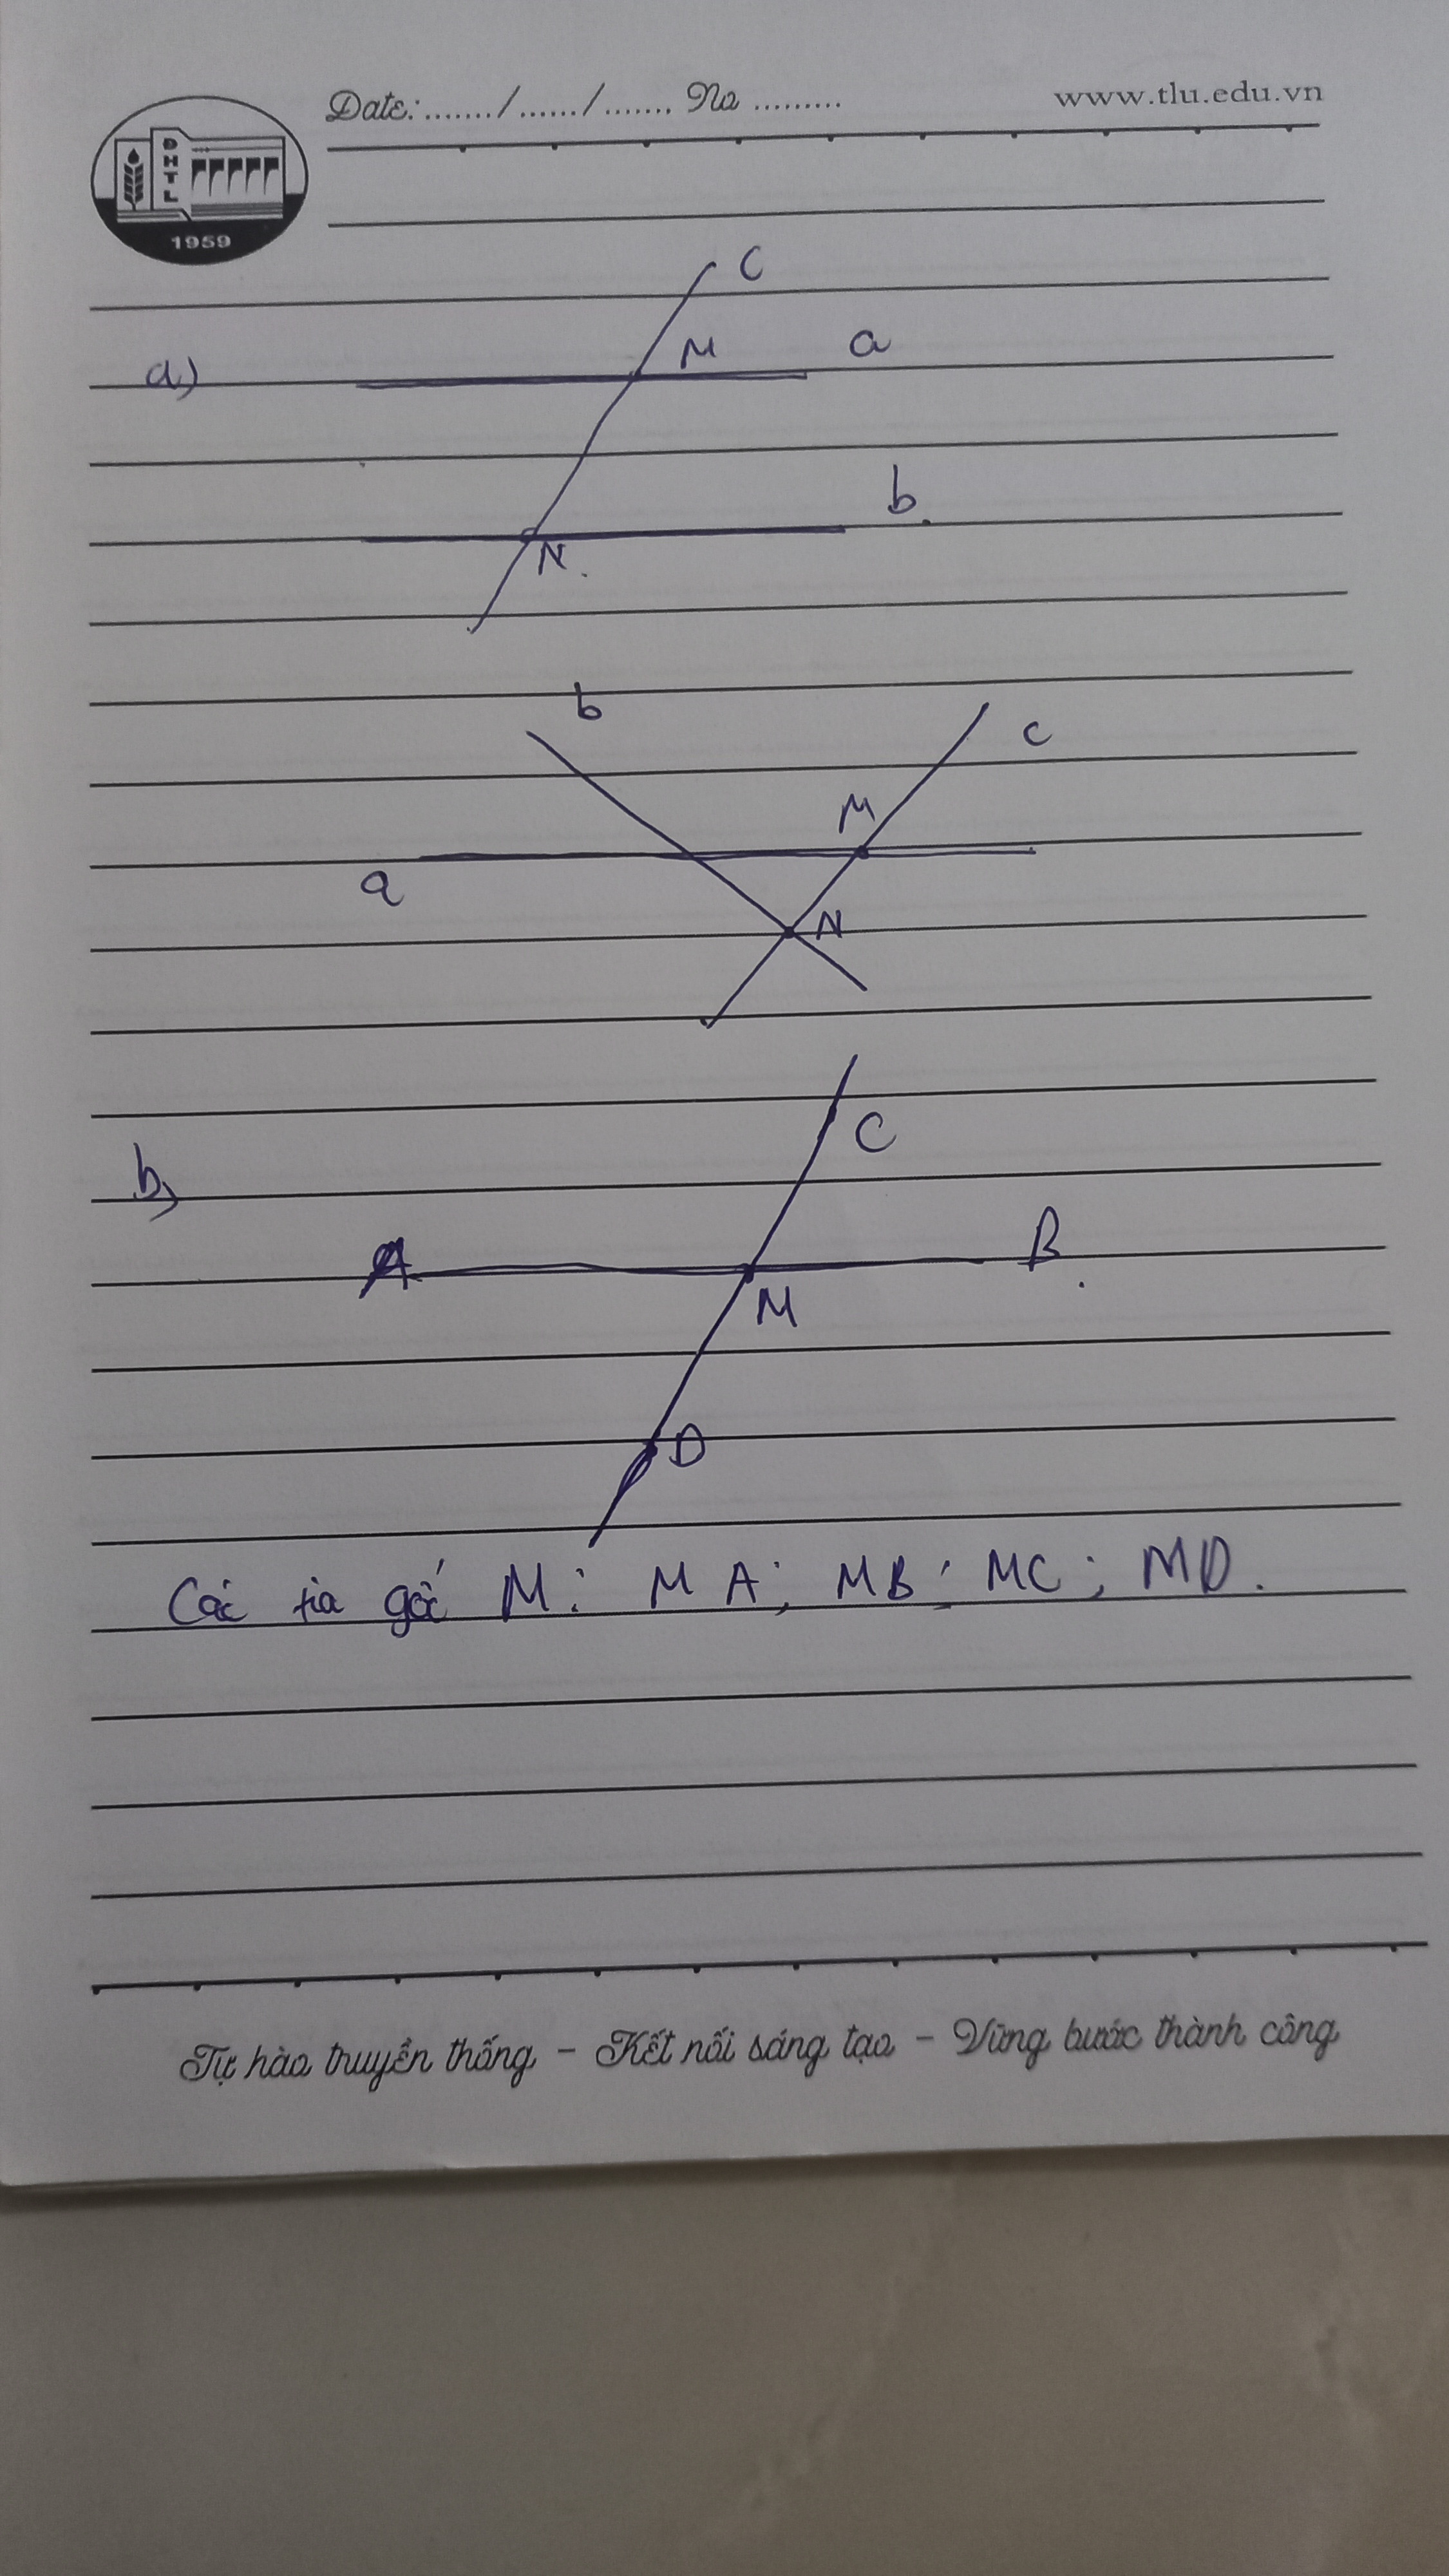 Date: ......./....../....... No .........
www.tlu.edu.vn
ĐHTL
1959
C
a)
M
a
b.
N.
b
c
M
a
N
b,
C
A
B.
M
D
Các tia gốc M: MA; MB; MC; MD.
Tự hào truyền thống - Kết nối sáng tạo - Vững bước thành công